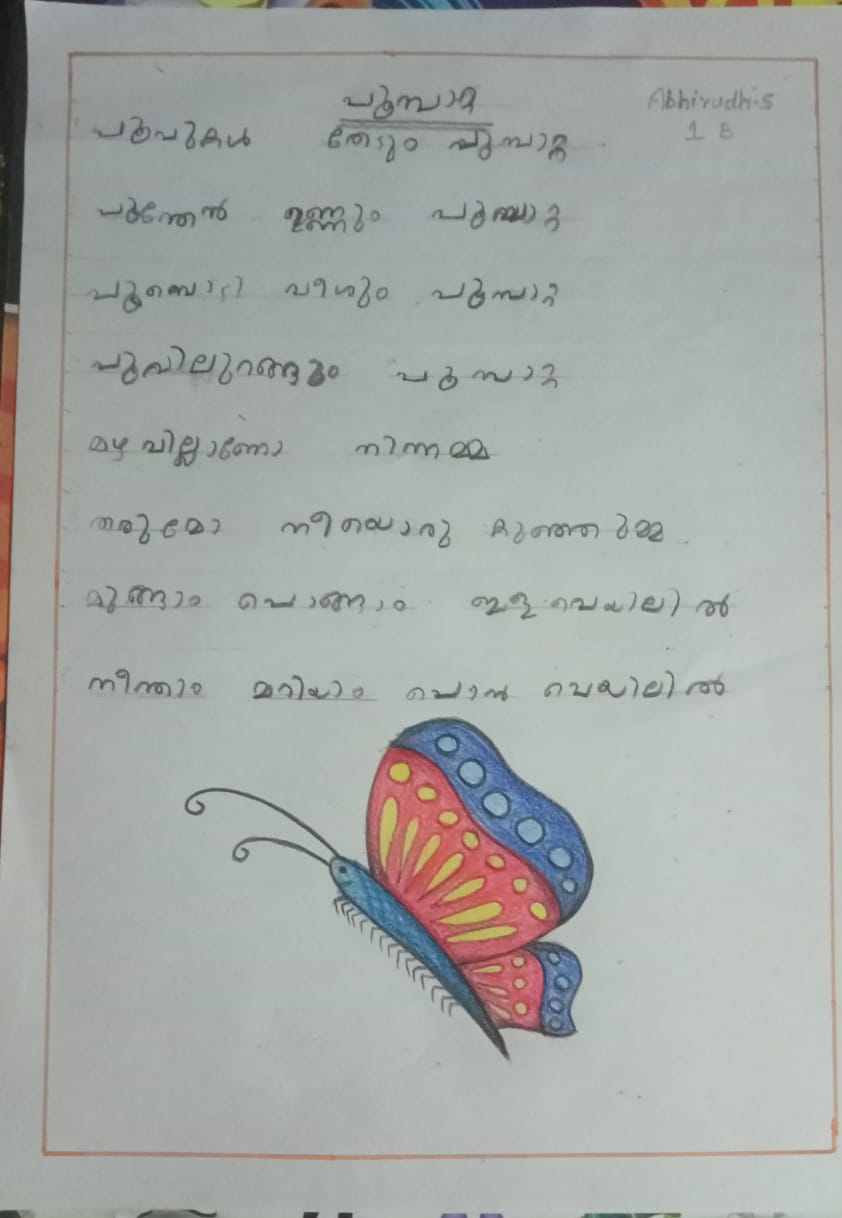 പൂമ്പാറ്റ
Abhirudh-S
1 B
പൂവുകൾ തേടും പൂമ്പാറ്റ
പൂന്തേൻ ഉണ്ണും പൂമ്പാറ്റ
പൂമ്പൊടി വീശും പൂമ്പാറ്റ
പൂവിലുറങ്ങും പൂമ്പാറ്റ
മഴവില്ലാണോ നിന്നമ്മ
തരുമോ നീയൊരു കുഞ്ഞുമ്മ
മുങ്ങാം പൊങ്ങാം ഇളവെയിലിൽ
നീന്താം മറിയാം പൊൻ വെയിലിൽ